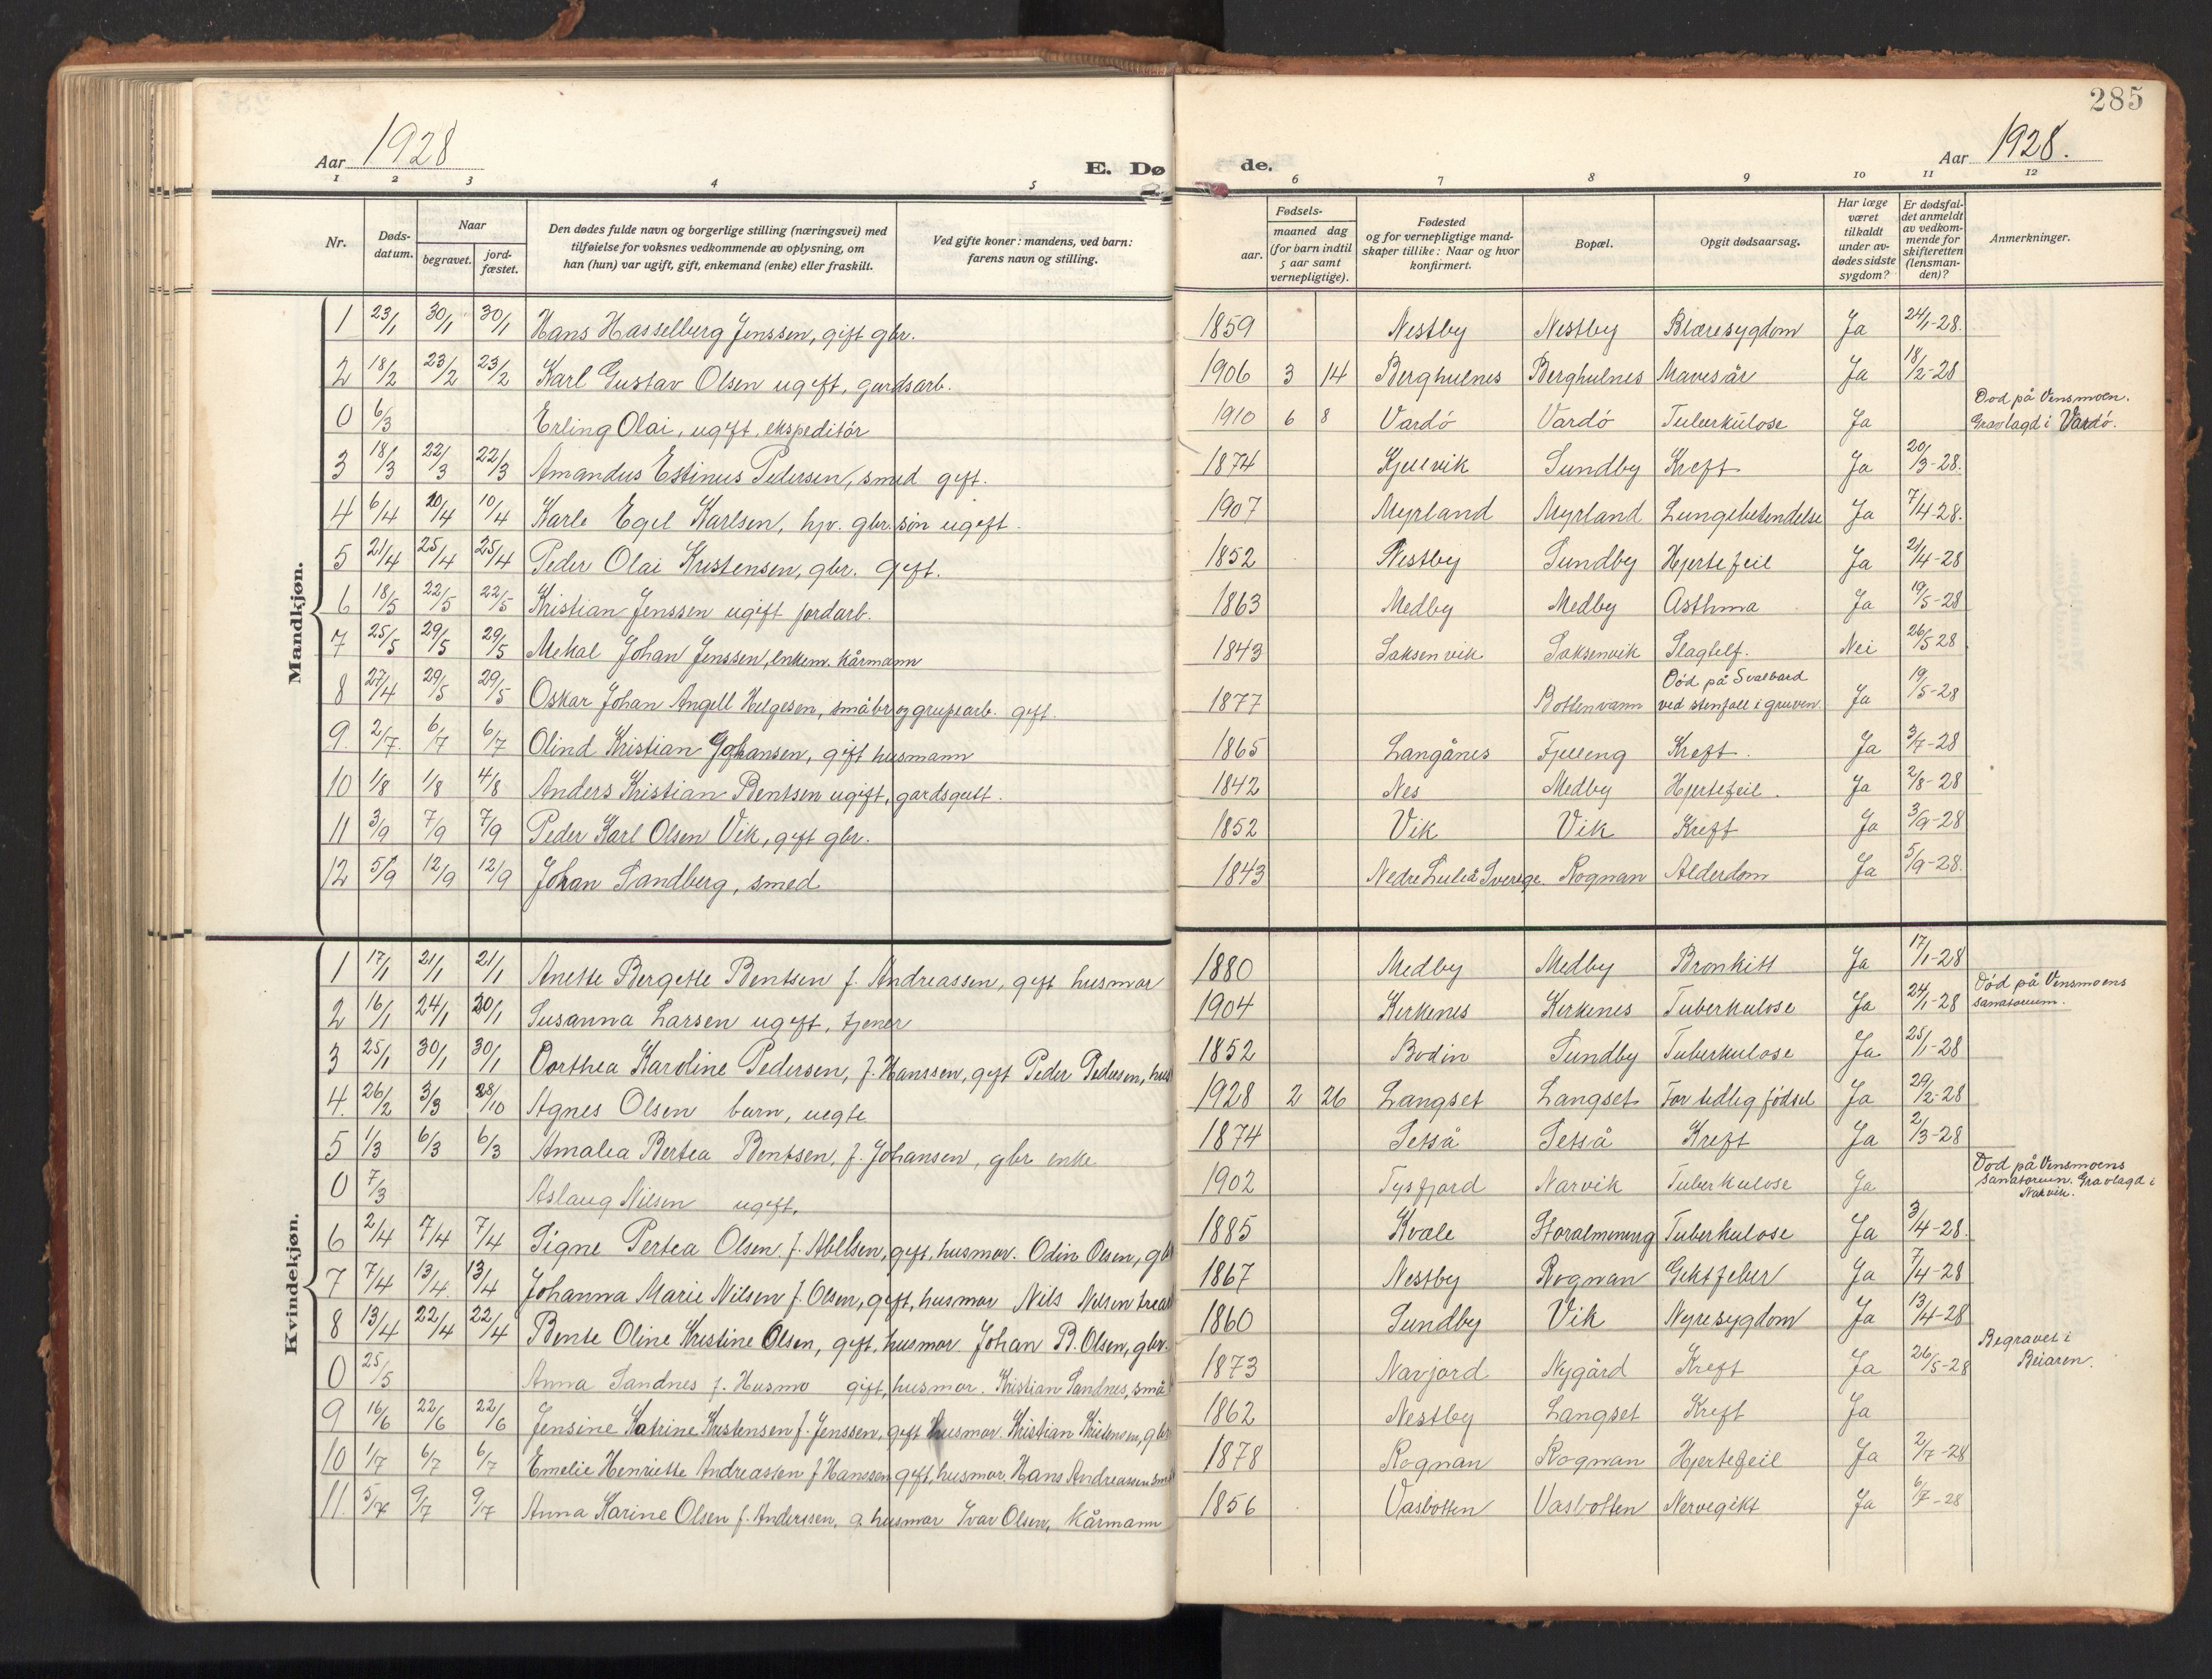 285
Aar 1928 E. Dø de. Aar 1928.
1 2 3 4 5 6 7 8 9 10 11 12
Nr. Døds-datum. Naar begravet. jord-fæstet. Den dødes fulde navn og borgerlige stilling (næringsvei) med tilføielse for voksnes vedkommende av oplysning, om han (hun) var ugift, gift, enkemand (enke) eller fraskilt. Ved gifte koner: mandens, ved barn: farens navn og stilling. Fødsels- aar. maaned dag (for barn indtil 5 aar samt vernepligtige). Fødested og for vernepligtige mand-skaper tillike: Naar og hvor konfirmert. Bopæl. Opgit dødsaarsag. Har læge været tilkaldt under av-dødes sidste sygdom? Er dødsfal-det anmeldt av vedkom-mende for skifteretten (lensman-den)? Anmerkninger.
Mandkjøn.
1 23/1 30/1 30/1 Hans Hasselberg Jenssen, gift gbr. 1859 Nestby Nestby Blæresygdom Ja 24/1-28.
2 18/2 23/2 23/2 Karl Gustav Olsen ugift, gardsarb. 1906 3 14 Berghulnes Berghulnes Mavesår Ja 18/2-28
0 6/3 Erling Olai, ugift, ekspeditør 1910 6 8 Vardö Vardö Tuberkulose Ja Död på Vensmoen. Gravlagd i Vardö.
3 18/3 22/3 22/3 Amandus Estinus Pedersen, smed gift. 1874 Kjelvik Sundby Kreft Ja 20/3-28.
4 6/4 10/4 10/4 Karle Egil Karlsen, hjv. gbr.søn ugift. 1907 Myrland Myrland Lungebetendelse Ja 7/4-28.
5 21/4 25/4 25/4 Peder Olai Kristensen, gbr. gift. 1852 Nestby Sundby Hjertefeil Ja 21/4-28
6 18/5 22/5 22/5 Kristian Jenssen ugift jordarb. 1863 Medby Medby Asthma Ja 19/5-28
7 25/5 29/5 29/5 Mekal Johan Jenssen, enkem. kårmann 1843 Saksenvik Saksenvik Slagtelf. Nei 26/5 28
8 27/4 29/5 29/5 Oskar Johan Angell Helgesen, småbr og grupearb. gift. 1877 Bottenvann Död på Svalbard ved stenfall i gruven. Ja 19/5-28
9. 2/7. 6/7 6/7 Olind Kristian Johansen, gift husmann 1865 Langånes Fjelleng Kreft. Ja 3/7-28
10 1/8 1/8 4/8 Anders Kristian Bentsen ugift, gardsgutt. 1842 Nes Medby Hjertefeil. Ja 2/8-28
11 3/9 7/9 7/9 Peder Karl Olsen Vik, gift gbr. 1852 Vik Vik Kreft Ja 3/9-28
12 5/9 12/9 12/9 Johan Sandberg, smed 1843 Nedre Luleå Sverige. Rognan Alderdom Ja 5/9-28.
Kvindekjøn.
1 17/1 21/1 21/1 Anette Bergette Bentsen f. Andreassen, gift husmor 1880 Medby Medby Bronkitt Ja 17/1-28
2 16/1 24/1 20/1 Susanna Larsen ugift, tjener 1904 Kirkenes Kirkenes Tuberkulose Ja 24/1-28 Död på Vensmoens sanatorium.
3 25/1 30/1 30/1 Dorthea Karoline Pedersen, f. Hanssen, gift Peder Pedersen, hus 1852 Bodin Sundby Tuberkulose Ja 25/1-28
4. 26/2 3/3 28/10 Agnes Olsen barn, uegte 1928 2 26 Langset Langset For tidlig fødsel Ja 29/2-28
5 1/3 6/3 6/3 Amalia Bertea Bentsen, f. Johansen, gbr enke 1874 Setså Setså Kreft Ja 2/3-28
0 7/3 Aslaug Nilsen ugift. 1902 Tysfjord Narvik Tuberkulose Ja Död på Vensmoens sanatorium. Gravlagd i Narvik.
6 2/4 7/4 7/4 Signe Pertea Olsen f. Abelsen, gift, husmor. Odin Olsen, gb 1885 Kvæle Storalmening Tuberkulose Ja 3/4-28.
7 7/4 13/4. 13/4 Johanna Marie Nilsen f. Olsen, gift, husmor Nils Nilsen 1867 Nestby Rognan Giktfeber Ja 7/4-28
8 13/4 22/4 22/4 Bente Oline Kristine Olsen, gift, husmor. Johan B. Olsen, gbr. 1860 Sundby Vik Nyresygdom Ja 13/4-28
0 25/5 Anna Sandnes f. Husmo gift, husmor. Kristian Sandnes, små 1873 Navjord Nygård Kreft Ja 26/5-28 Begravet i Beiaren.
9 16/6 22/6 22/6 Jensine Katrine Kristensen f. Jenssen, gift husmor. Kristian Kristensen, gbr 1862 Nestby Langset Kreft Ja
10 1/7 6/7 6/7 Emelie Henriette Andreassen f Hanssen gift, husmor Hans Andreassen sm 1878 Rognan Rognan Hjertefeil Ja 2/7-28
11. 5/7 9/7 9/7 Anna Karine Olsen f. Anderssen, g. husmor Ivar Olsen, kårmann 1856 Vasbotten Vasbotten Nervegikt Ja 6/7-28